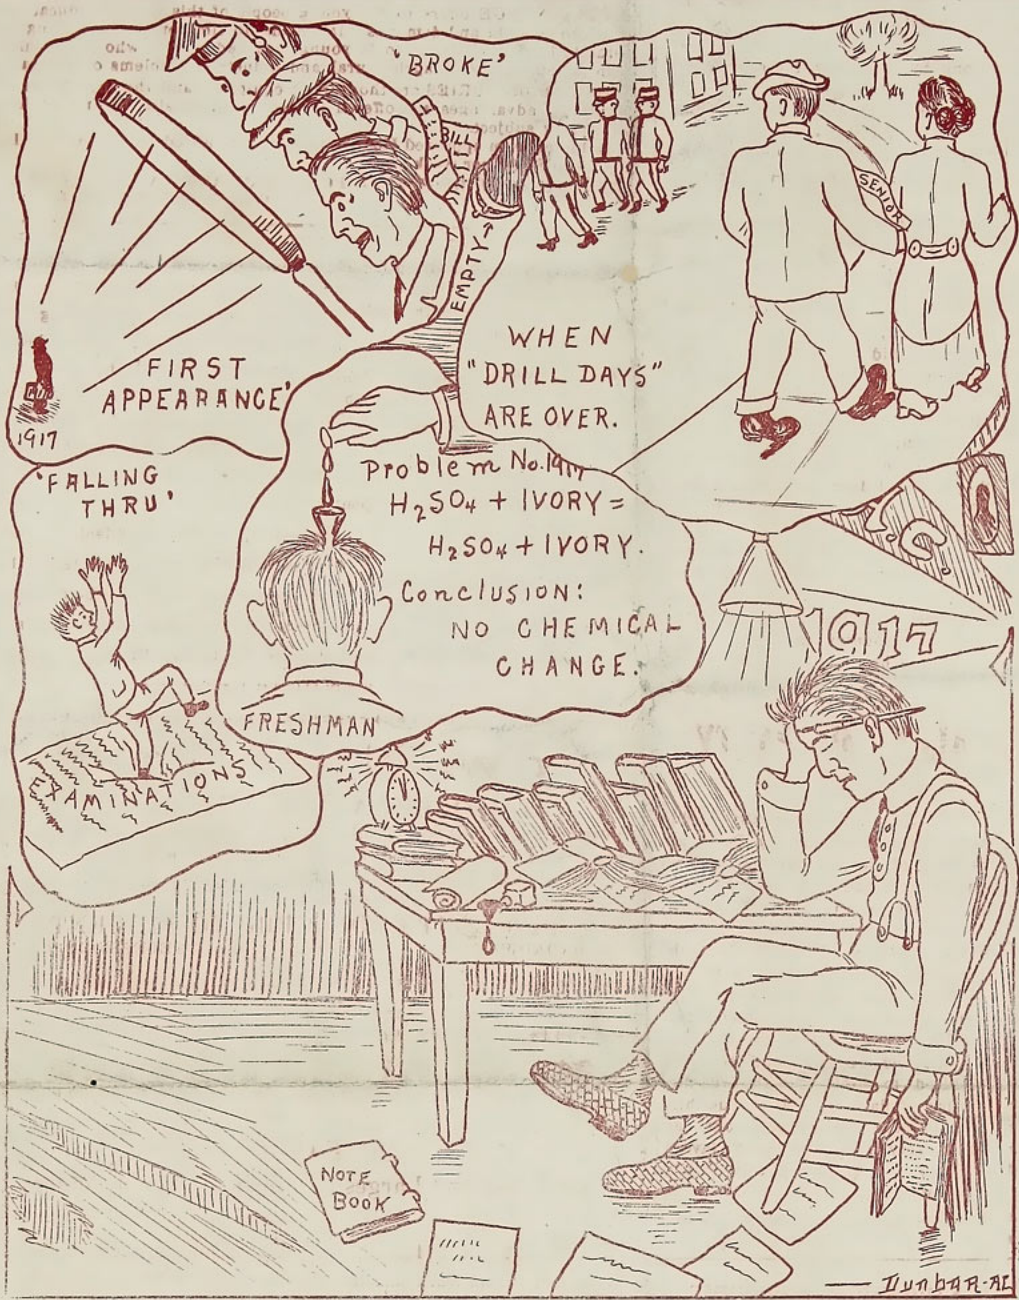 'BROKE'
BILL
EMPTY →
SENIOR
FIRST
APPEARANCE'
1917
WHEN
"DRILL DAYS"
ARE OVER.
'FALLING
THRU'
EXAMINATIONS
Problem No. 1917
H₂SO₄ + IVORY =
H₂SO₄ + IVORY.
Conclusion:
NO CHEMICAL
CHANGE.
FRESHMAN
1917
NOTE
BOOK
— DUNBAR-AE